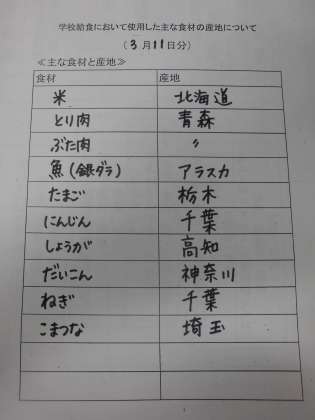 学校給食において使用した主な食材の産地について
(3月11日分)
≪主な食材と産地≫
食材 産地
米 北海道
とり肉 青森
ぶた肉 〃
魚(銀ダラ) アラスカ
たまご 栃木
にんじん 千葉
しょうが 高知
だいこん 神奈川
ねぎ 千葉
こまつな 埼玉